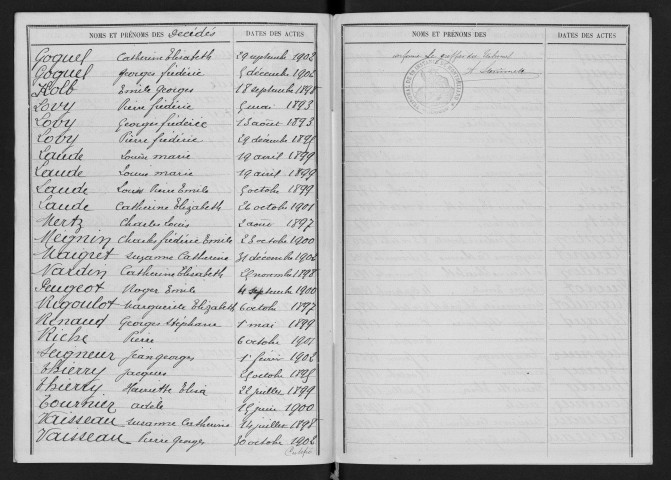 NOMS ET PRÉNOMS DES Décédés DATES DES ACTES
Goguel Catherine Elisabeth 29 septembre 1902
Goguel Georges frédéric 5 décembre 1902
Kolb Emile Georges 18 septembre 1898
Lovy Pierre frédéric 5 mai 1893
Lovy Georges frédéric 13 août 1893
Lovy Pierre frédéric 29 décembre 1895
Laude Louis marie 19 avril 1899
Laude Louis marie 19 avril 1899
Laude Louis Pierre Emile 5 octobre 1899
Laude Catherine Elizabeth 26 octobre 1901
Mertz Charles Louis 2 août 1897
Meignin Charles frédéric Emile 23 octobre 1900
Maigret Suzanne Catherine 31 décembre 1902
Nardin Catherine Elisabeth 29 novembre 1898
Peugeot Roger Emile 4 septembre 1900
Rigoulot Marguerite Elizabeth 6 octobre 1897
Renaud Georges Stéphane 1 mai 1899
Riche Pierre 6 octobre 1901
Seigneur jean georges 1 février 1902
thierry jacques 29 octobre 1895
thierry Henriette Elisa 22 juillet 1899
Tournier adèle 15 juin 1900
Vaisseau Suzanne Catherine 14 juillet 1898
Vaisseau Pierre Georges 30 octobre 1902
NOMS ET PRÉNOMS DES DATES DES ACTES